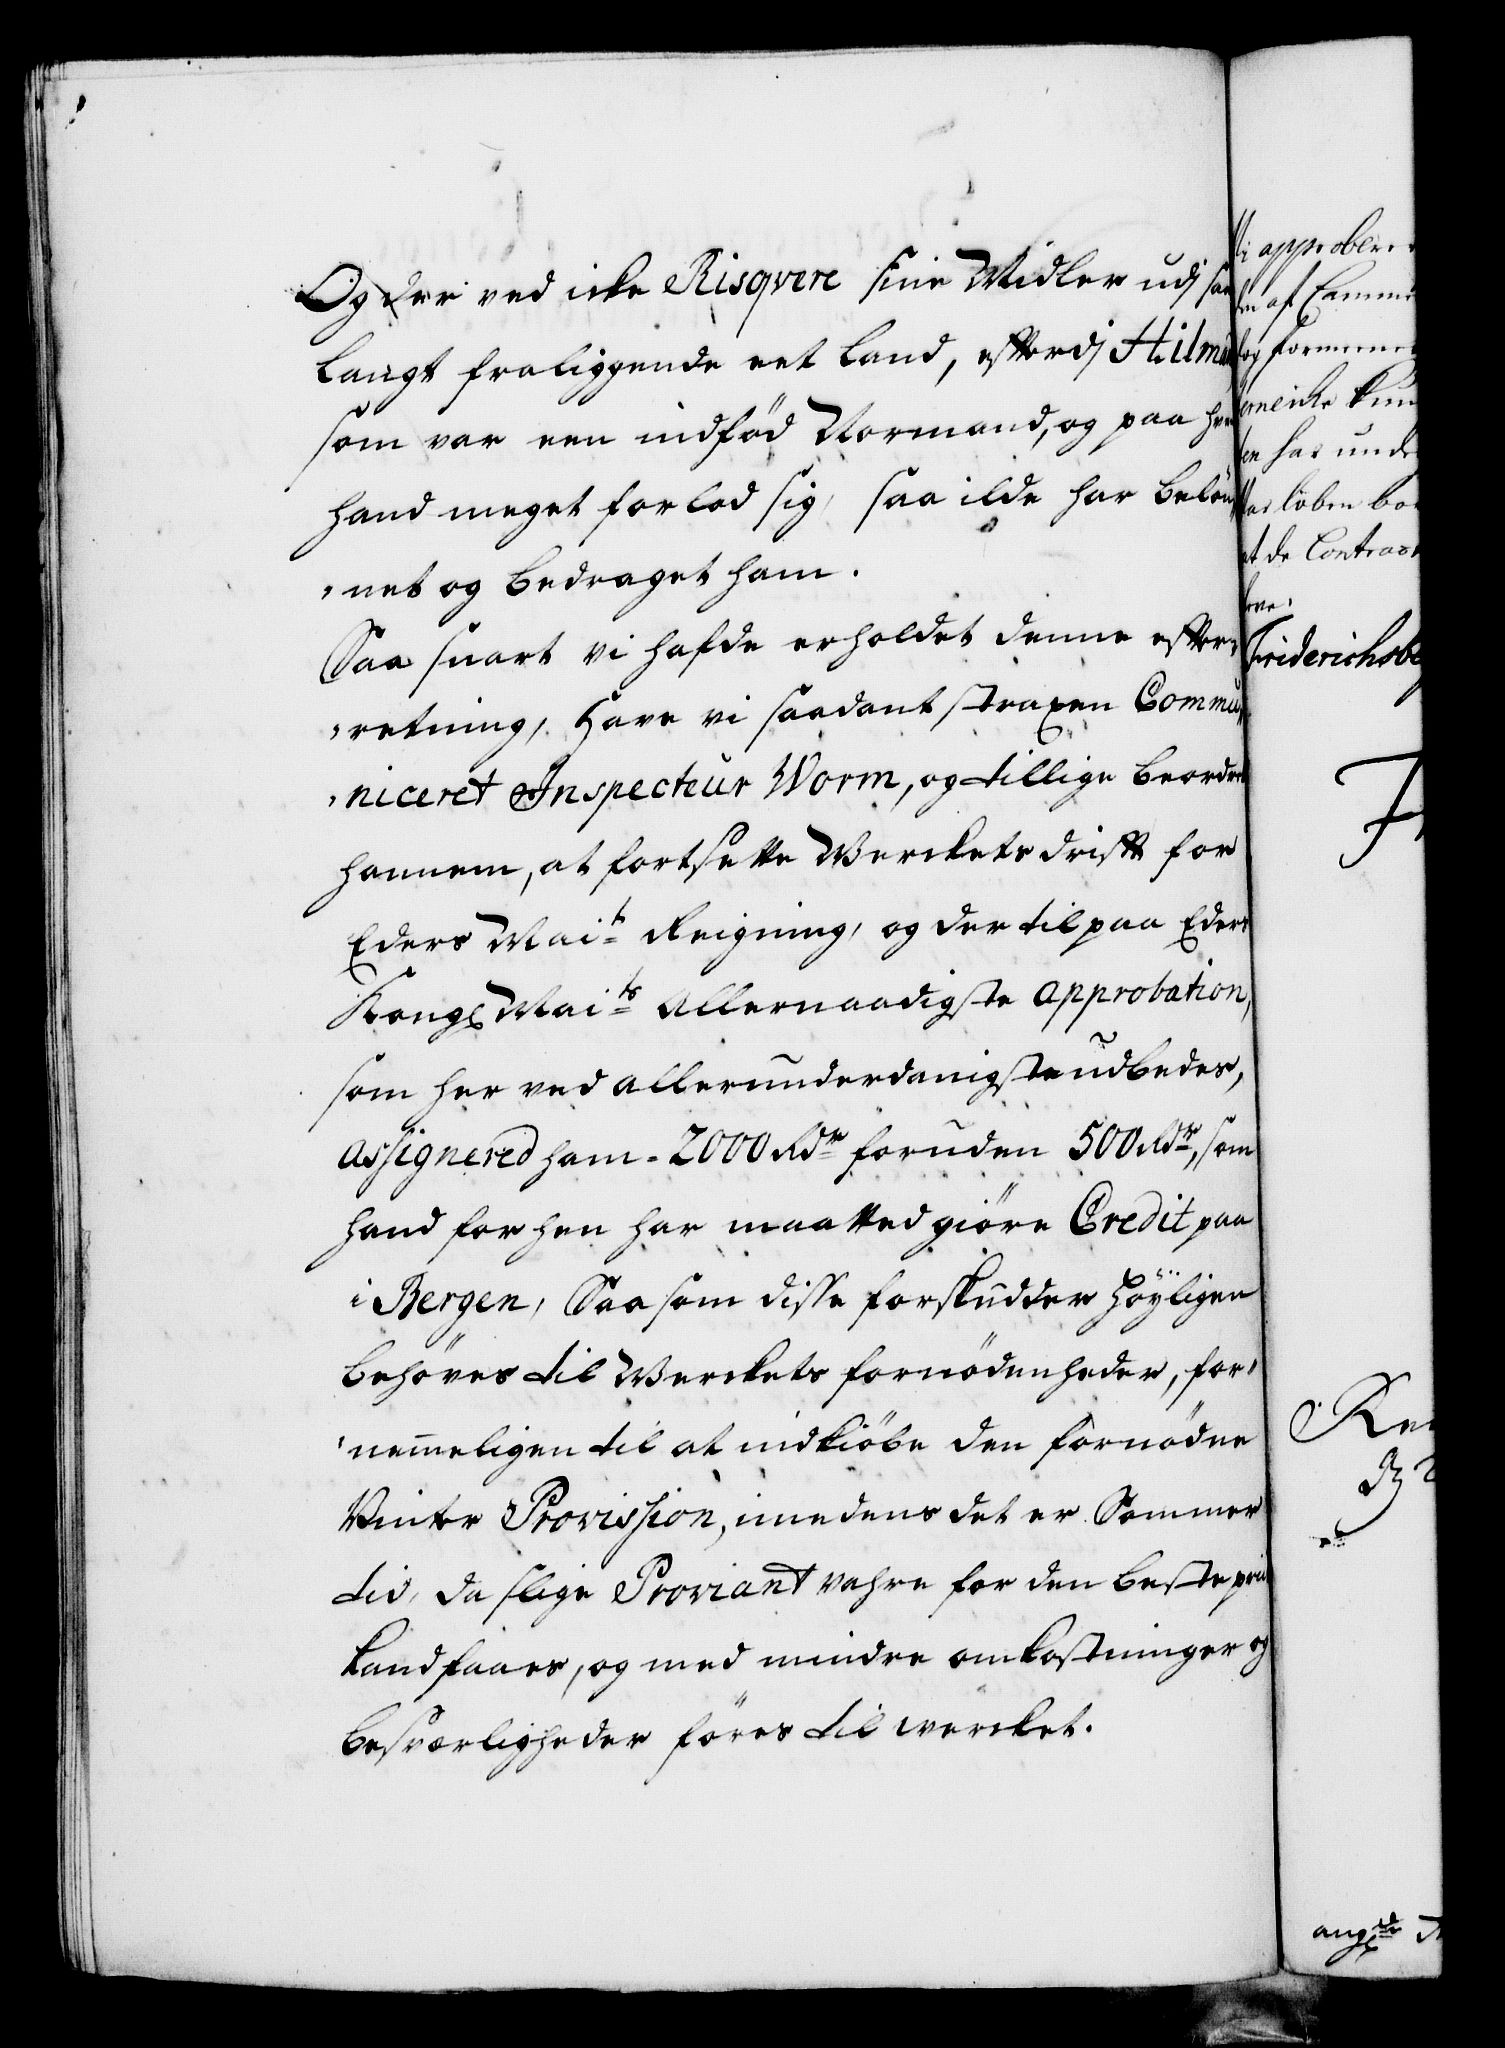 Og der ved icke Risqvere sine Midler udj saa
langt fraliggende eet land, efterdj Hilmer
som var een indfød Normand, og paa hvem
hand meget forlod sig, saa ilde har belön¬
„net og bedraget ham.
Saa snart vi hafde erholdet denne efter„
„retning, Have vi saadant straxen Commu„
„niceret Inspecteur Worm, og tillige beordret
hannem, at fortsette Werckets drift for
Eders Mai:ts Reigning, og der til paa Eders
Kongl Mai:ts Allernaadigste approbation,
som her ved allerunderdanigste udbedes,
assignered ham - 2000 Rdr foruden 500 Rdr, som
hand forhen har maatted giöre Credit paa
i Bergen, Saasom disse forskudder Höÿligen
behöves til Werckets fornödenheder, for„
„nemeligen til at indkiöbe den fornödne
Vinter Provission, imedens det er Sommer
tid, da slige Proviant vahre for den beste priis
kand faaes, og med mindre omkostninger og
besværligheder föres til wercket.
Vi approbere
den af Camme
og formeene
icke kun
har unde
löben bor
at de Contrac
Friderichsbe